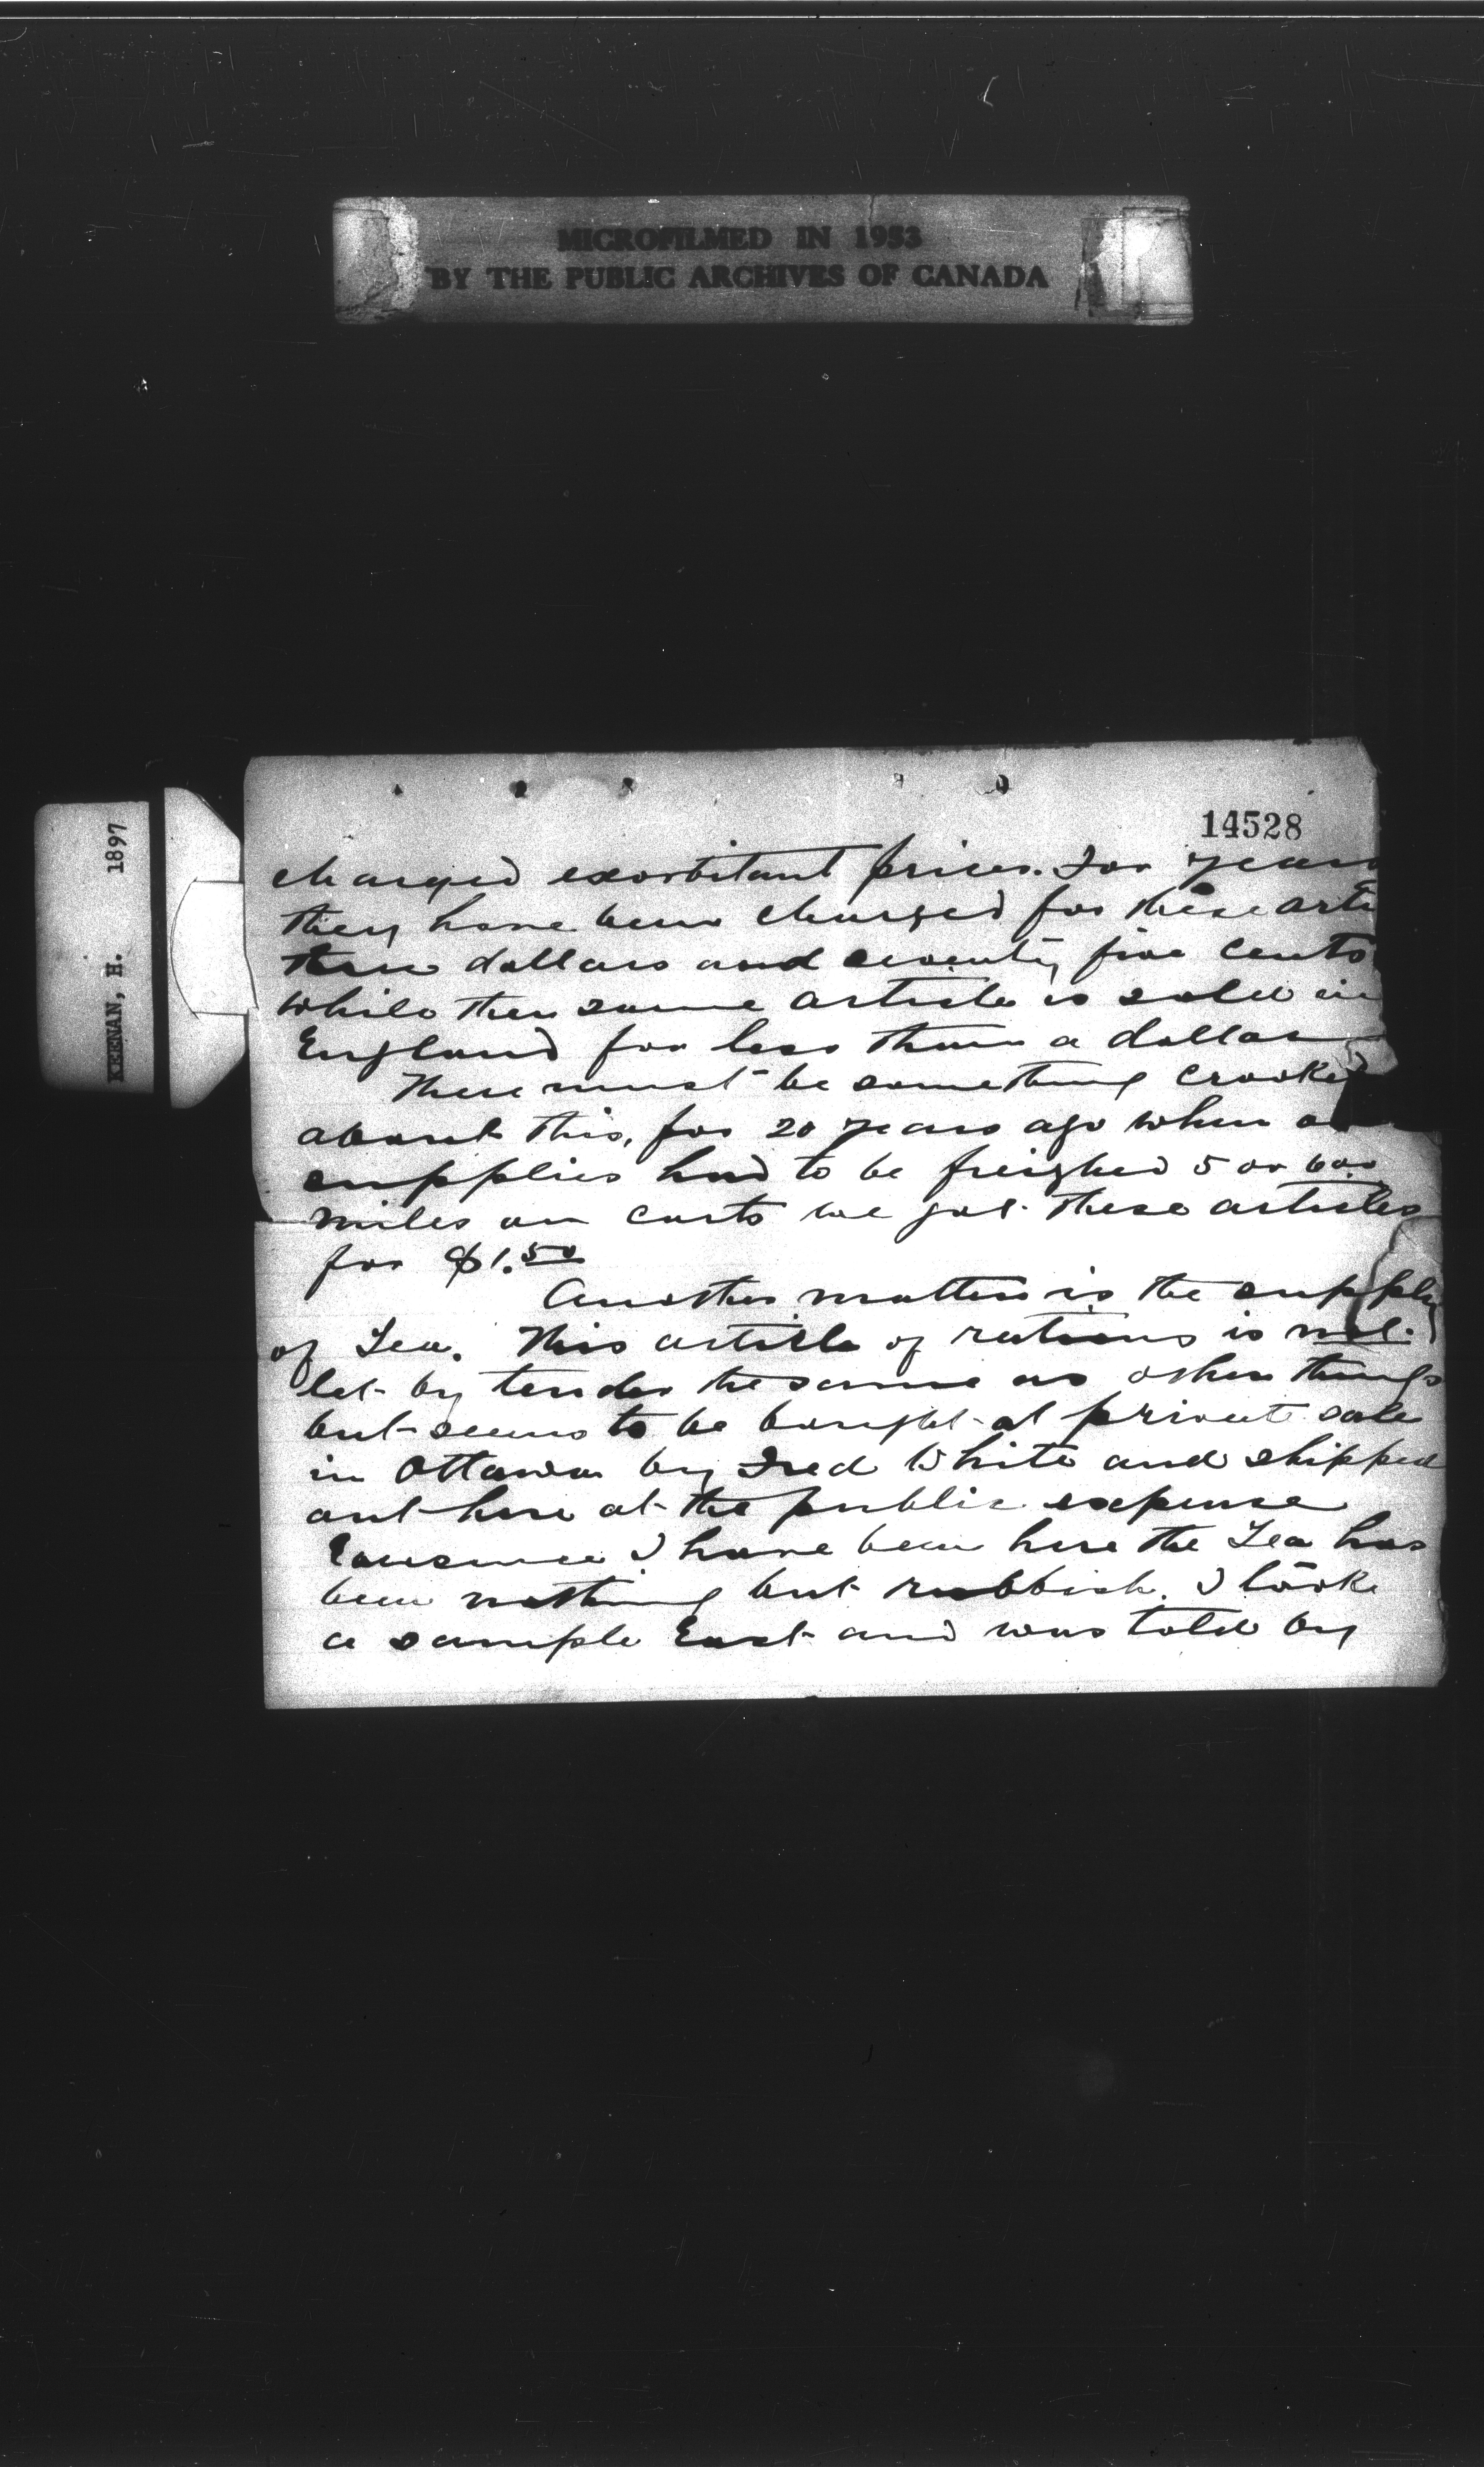 MICROFILMED IN 1953
BY THE PUBLIC ARCHIVES OF CANADA
KEENAN, H. 1897
14528
charged exorbitant prices. For years
they have been charged for these arti
three dollars and seventy five cents
while the same article is sold in
England for less than a dollar
There must be something crooked
about this, for 20 years ago when
supplies had to be freighed 5 or 600
miles on carts we got these articles
for $1.50
Another matter is the supply
of Tea. This article of rations is not
let by tender the same as other things
but seems to be bought at private sale
in Ottawa by Fred White and shipped
out here at the public expense
I have been here the Tea has
been nothing but rubbish. I tooke
a sample East and was told by